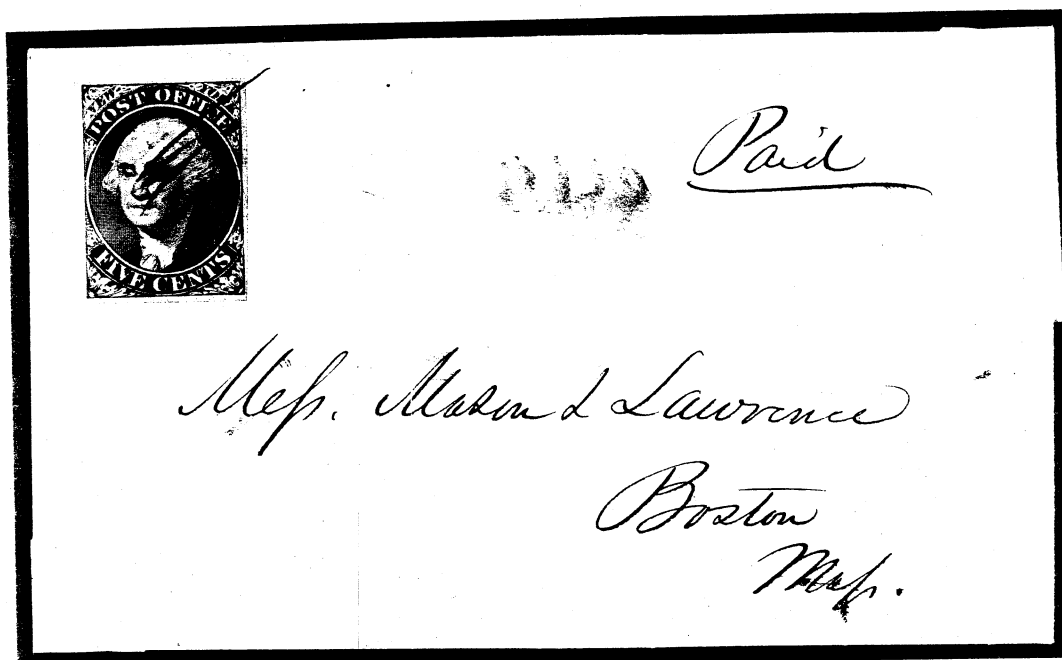 POST OFFICE
FIVE CENTS
PAID
Paid
Mess. Mason & Lawrence
Boston
Mass.